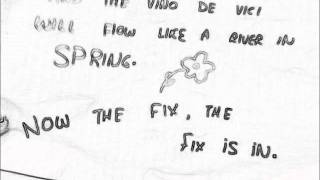 THE VINO DE VICI
WILL FLOW LIKE A RIVER IN
SPRING.
NOW THE FIX, THE
FIX IS IN.